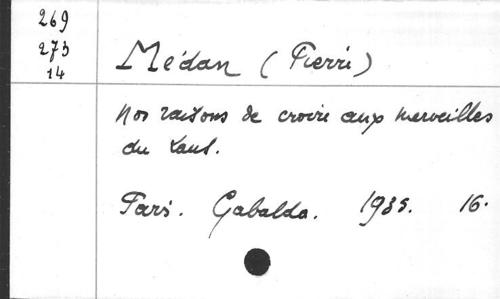 269
273
14
Médan (Pierre)
Nos raisons de croire aux merveilles
du
Paris. Gabalda. 1935. 16.